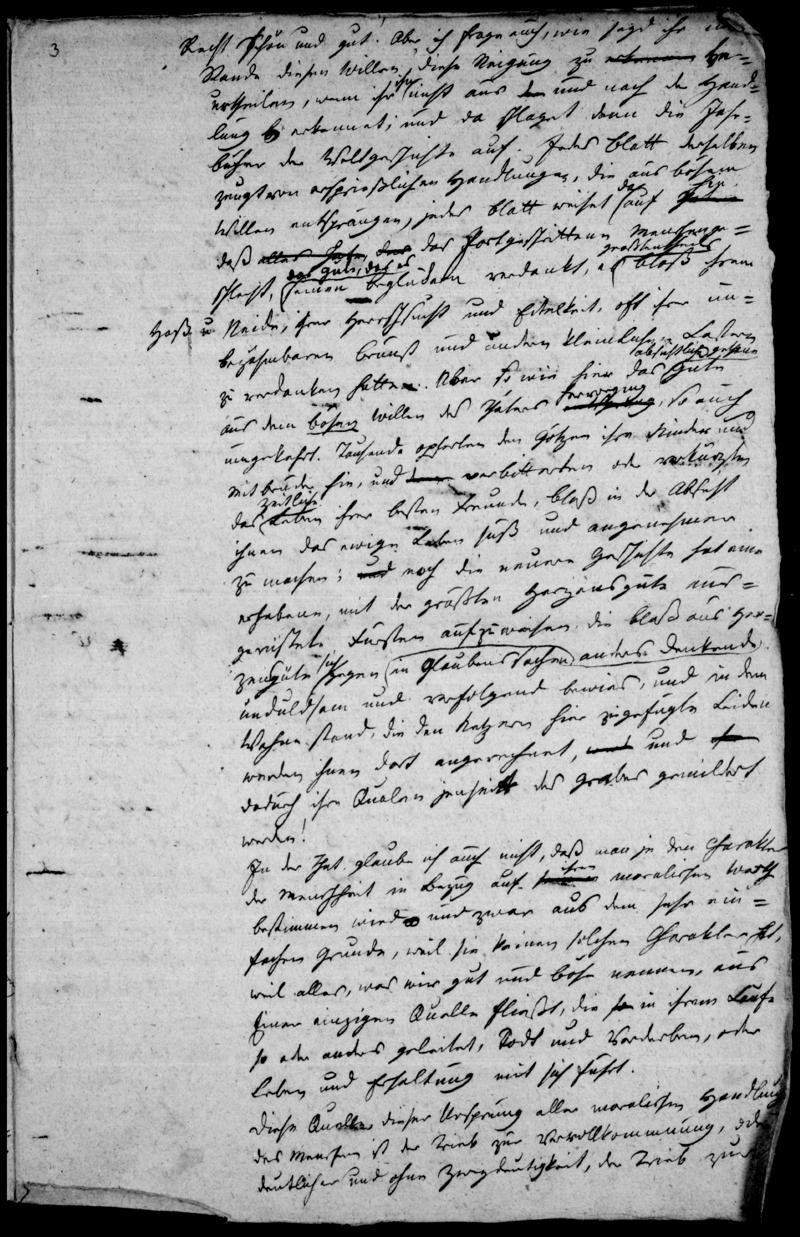 3
Recht schön und gut! Aber ich frage euch, wie seyd ihr im
Stande diesen Willen, diese Neigung zu be=
urtheilen, wenn ihr sie nicht aus und nach der Hand=
lung erkennet; und da schlaget denn die Jahr=
bücher der Weltgeschichte auf. Jedes Blatt derselben
zeugt von ersprießlichen Handlungen, die aus bösem
Willen entsprangen, jedes Blatt weiset darauf hin,
daß das Fortgeschrittene Menschenge=
schlecht, das Gute, das es seinen Beglückern verdankt, es größtentheils bloß ihrem
Haß u Neide, ihrer Herrschsucht und Eitelkeit, oft ihrer un=
bezähmbaren Brunst und andern kleinlichen Lastern
zu verdanken hatte. Aber so wie hier das absichtlich gethane Gute
aus dem bösen Willen des Thäters hervorging, so auch
umgekehrt. Tausende opferten den Götzen ihre Kinder und
Mitbrüder hin, und verbitterten oder verkürzten
das zeitliche Leben ihrer besten Freunde, bloß in der Absicht
ihnen das ewige Leben süß und angenehmer
zu machen; und noch die neuere Geschichte hat eine
erhabene, mit der größten Herzensgüte aus=
gerüstete Fürstin aufzuweisen, die bloß aus Her=
zensgüte sich gegen in Glaubenssachen anders Denkende
unduldsam und verfolgend bewies, und in dem
Wahne stand, die den Ketzern hier zugefügte Leiden
werden ihnen dort angerechnet, und
dadurch ihre Qualen jenseits des Grabes gemildert
werden!
In der That glaube ich auch nicht, daß man je den Charakter
der Menschheit in Bezug auf ihren moralischen Werth
bestimmen wird und zwar aus dem sehr ein=
fachen Grunde, weil sie keinen solchen Charakter hat,
weil alles, was wir gut und böse nennen, aus
Einer einzigen Quelle fließt, die in ihrem Laufe
so oder anders geleitet, Tod und Verderben, oder
Leben und Erhaltung mit sich führt.
Diese Quelle dieser Ursprung aller moralischen Handlung
des Menschen ist der Trieb zur Vervollkommnung, oder
deutlicher und ohne Zweydeutigkeit, der Trieb zur